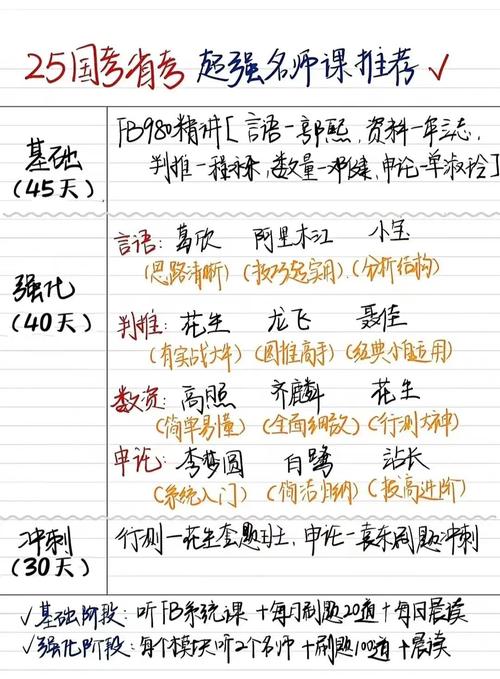 25国考省考 超强名师课推荐 ✓
基础
(45天)
FB980精讲[言語-郭熙,资料-牟立志,
判推-程永乐,数量-邓健,申论-单淑玲]
强化
(40天)
言語:葛欣 阿里木江 小宝
(思路清晰)(技巧超实用)(分析结构)
判推:花生 龙飞 聂佳
(有实战大牛)(图推高手)(经典小组运用)
数资:高照 齐麟 花生
(简单易懂)(全面细致)(行测大神)
申论:李梦圆 白鹭 站长
(系统入门)(简洁归纳)(拔高进阶)
冲刺
(30天)
行测-花生套题班,申论-袁东刷题冲刺
✓基础阶段:听FB系统课+每日刷题20道+每日晨读
✓强化阶段:每个模块听2个名师+刷题100道+晨读